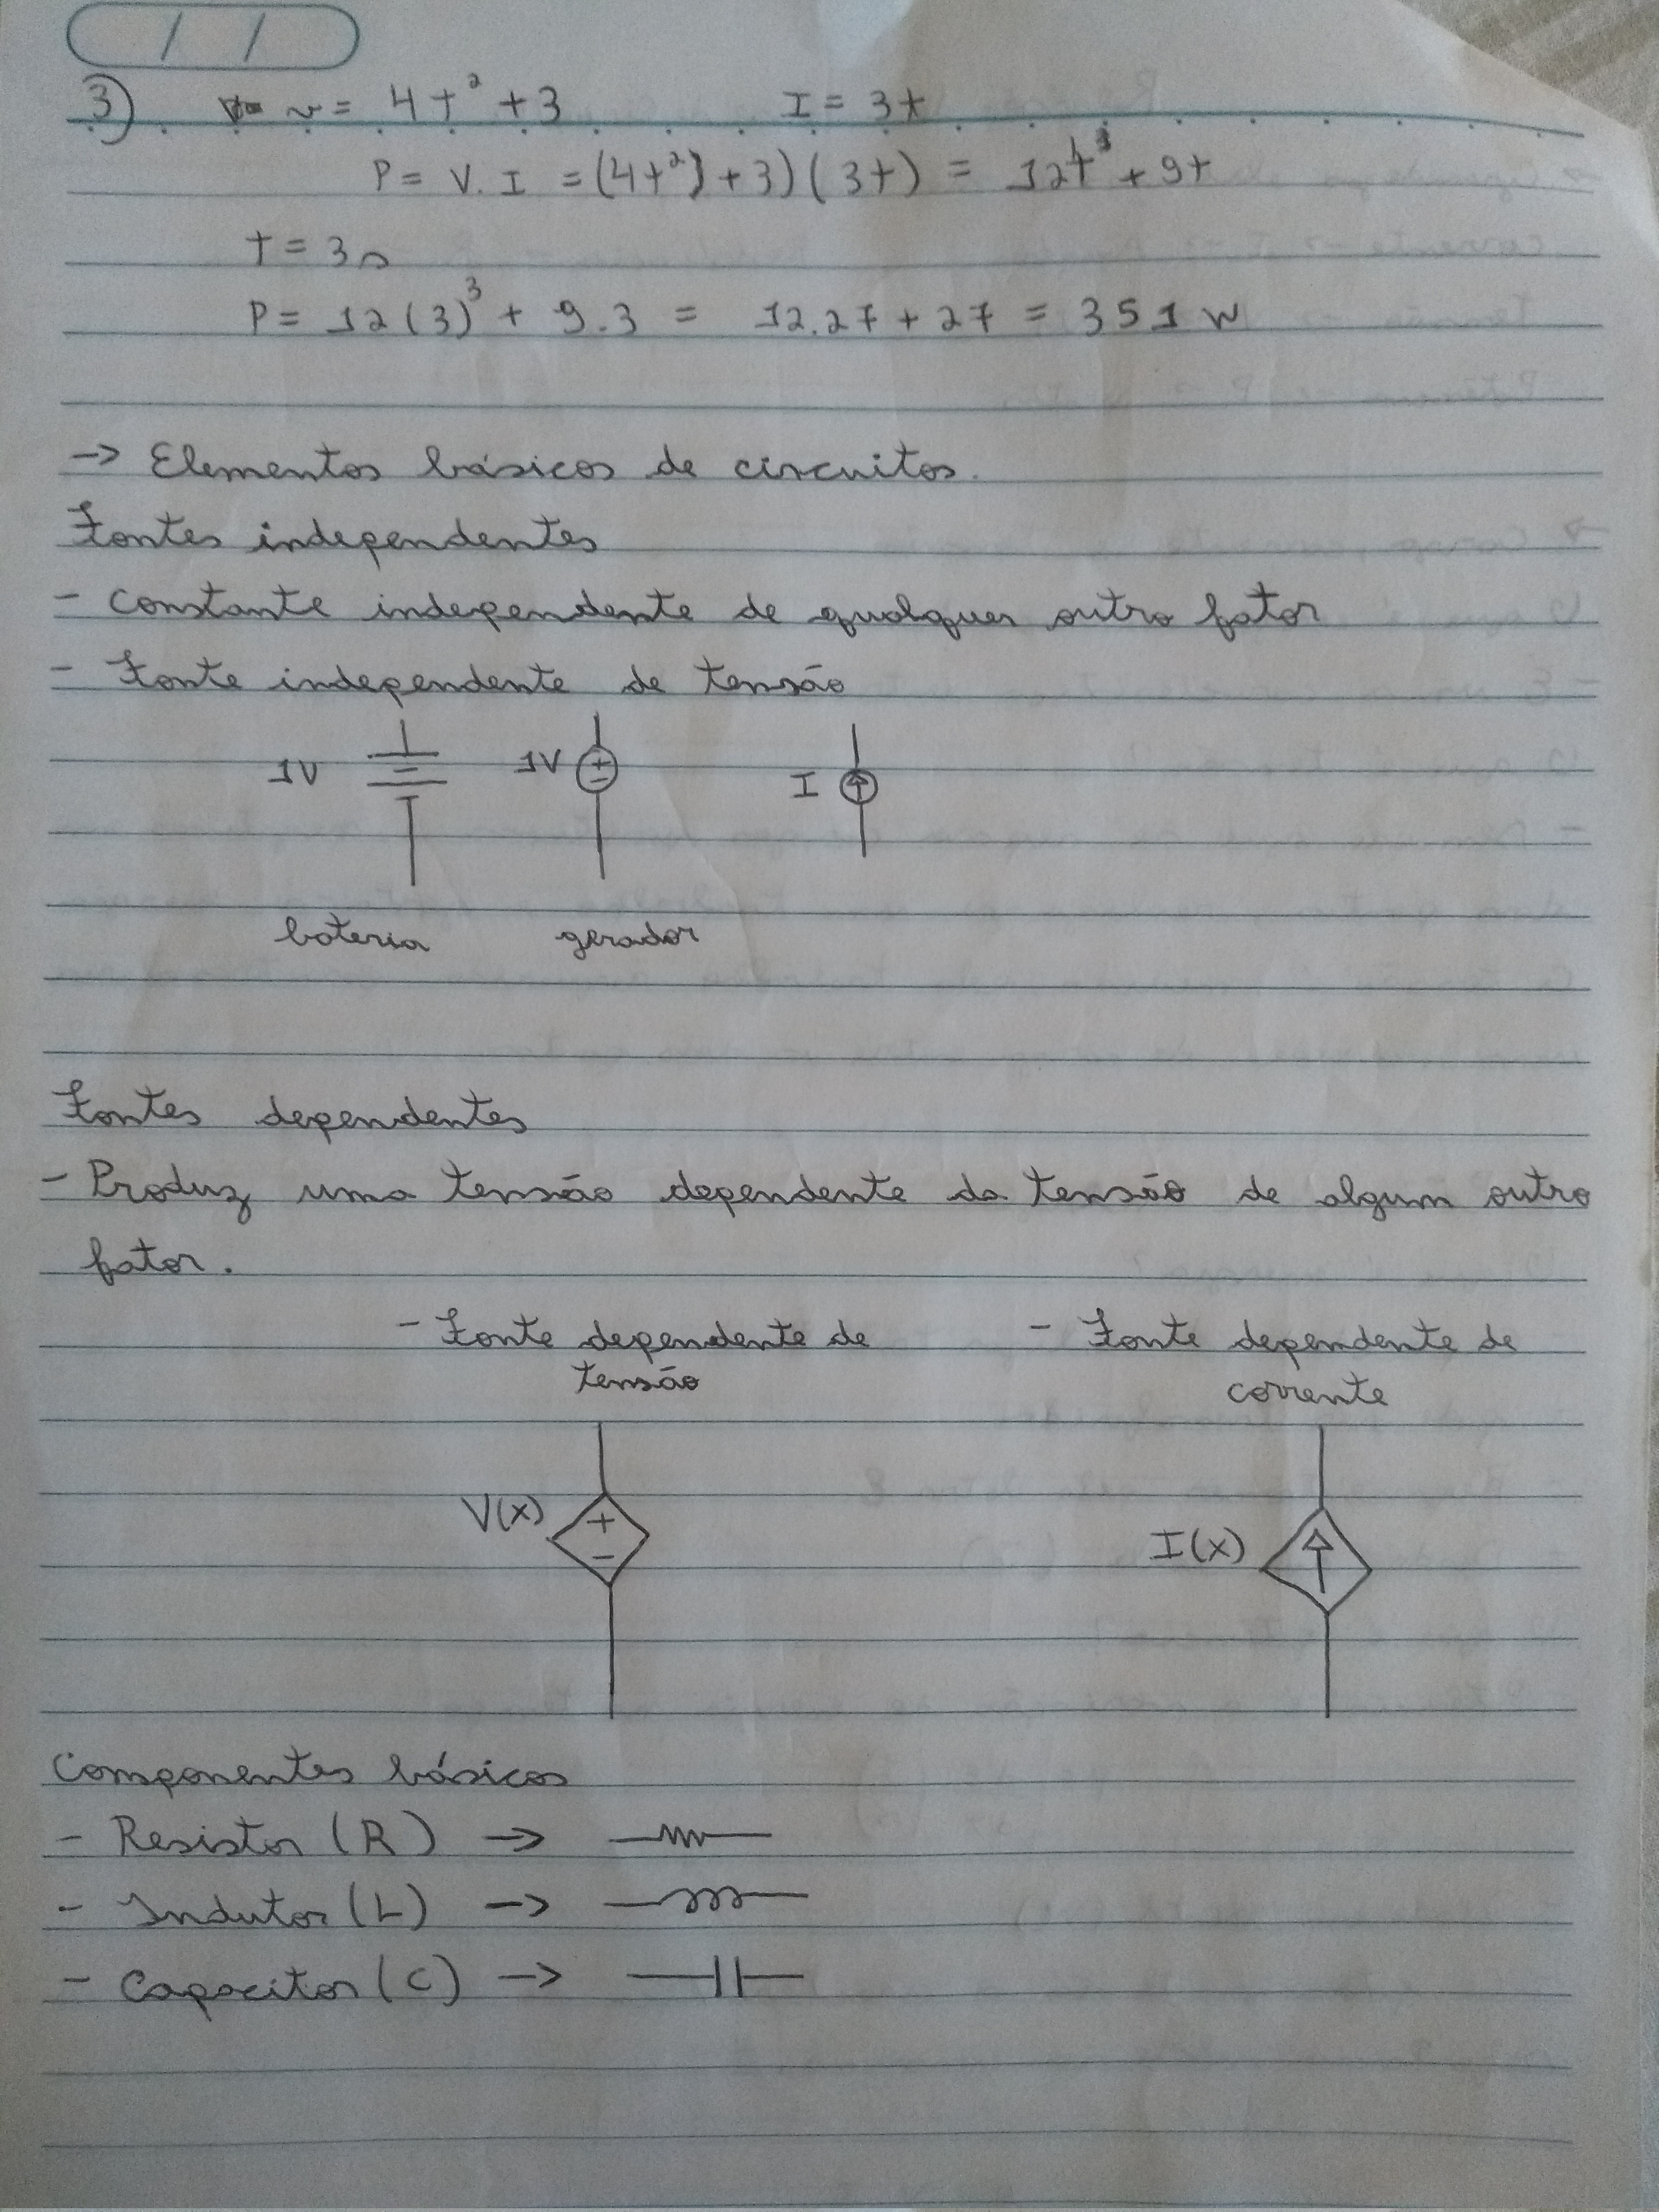 / /
3) v = 4t² + 3 I = 3t
P = V.I = (4t²) + 3)(3t) = 12t³ + 9t
t = 3s
P = 12(3)³ + 9.3 = 12.27 + 27 = 351 W
-> Elementos básicos de circuitos.
Fontes independentes
- Constante independente de qualquer outro fator
- Fonte independente de tensão
1V 1V + - I
bateria gerador
Fontes dependentes
- Produz uma tensão dependente da tensão de algum outro
fator.
- Fonte dependente de - Fonte dependente de
tensão corrente
V(x) + - I(x)
Componentes básicos
- Resistor (R) ->
- Indutor (L) ->
- Capacitor (C) ->